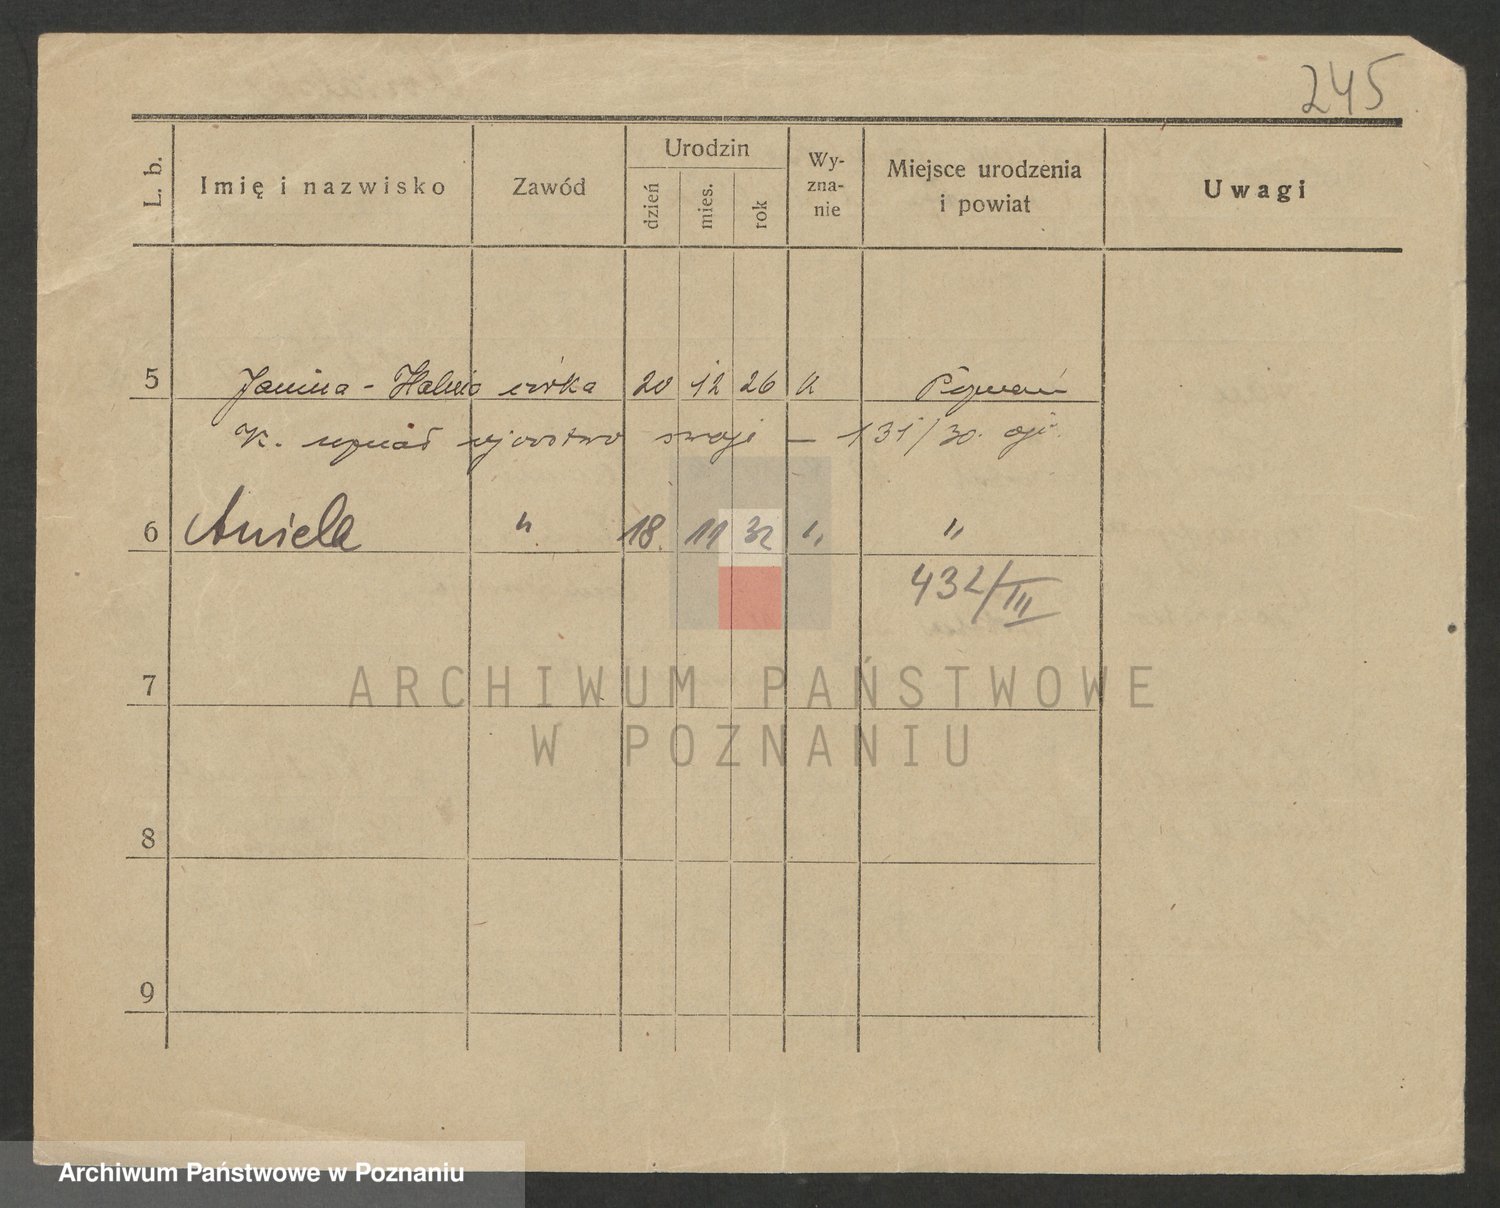 245
L. b. Imię i nazwisko Zawód Urodzin dzień mies. rok Wy-zna-nie Miejsce urodzenia i powiat Uwagi
5 Janina - Halina córka 20 12 26 k Poznań
K. uznał ojcostwo swoje — 131/30.
6 Aniela " 18. 11 32 " "
432/III
7
ARCHIWUM PAŃSTWOWE
W POZNANIU
8
9
Archiwum Państwowe w Poznaniu